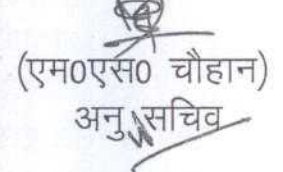 (एम0एस0 चौहान)
अनु सचिव